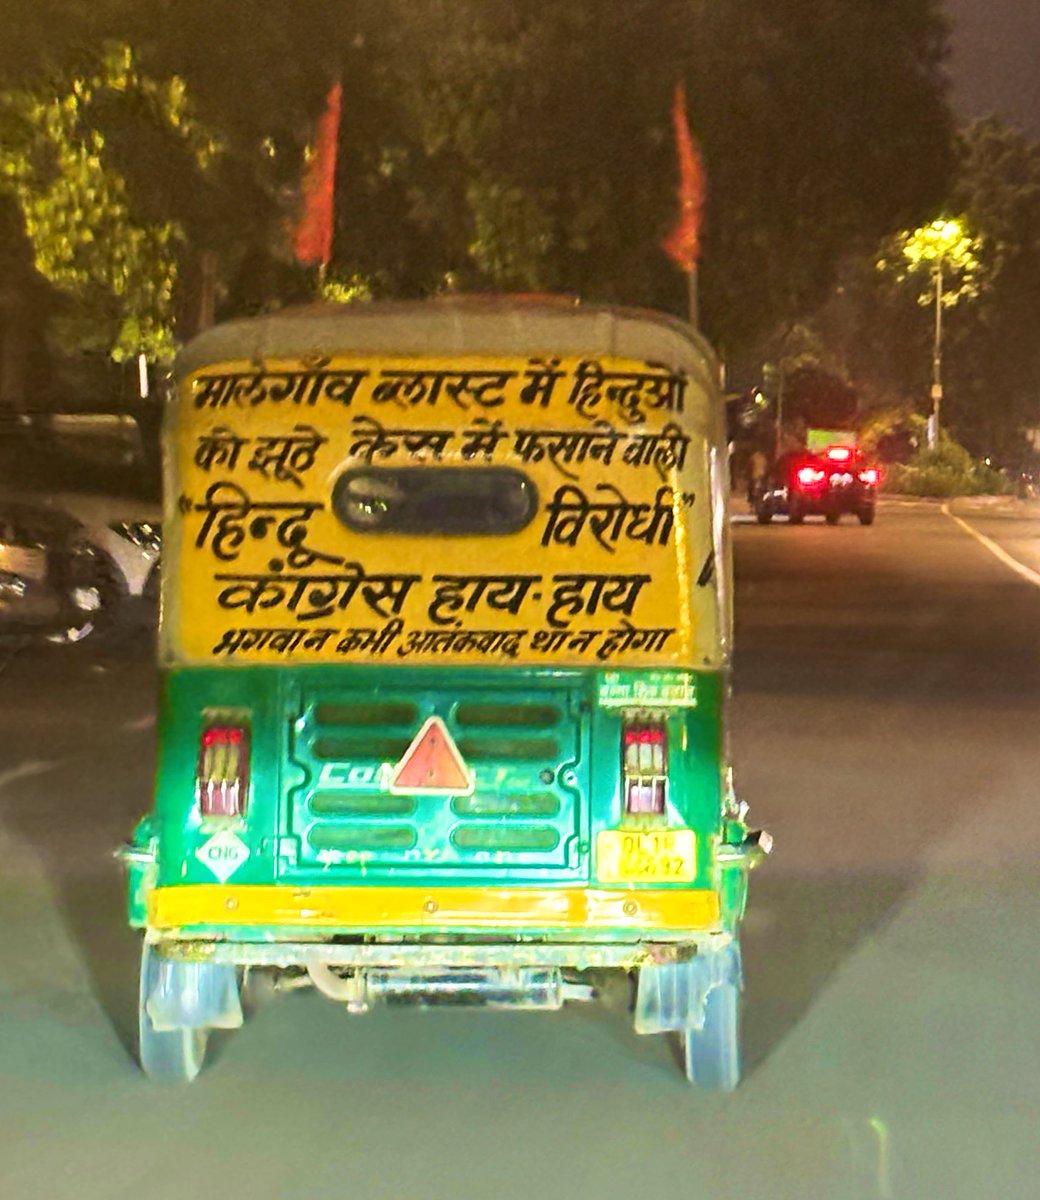 मालेगाँव ब्लास्ट में हिन्दुओं
को झूठे केस में फसाने वाली
"हिन्दू विरोधी"
कांग्रेस हाय-हाय
भगवा न कभी आतंकवाद था न होगा
CNG
DL 1R
92